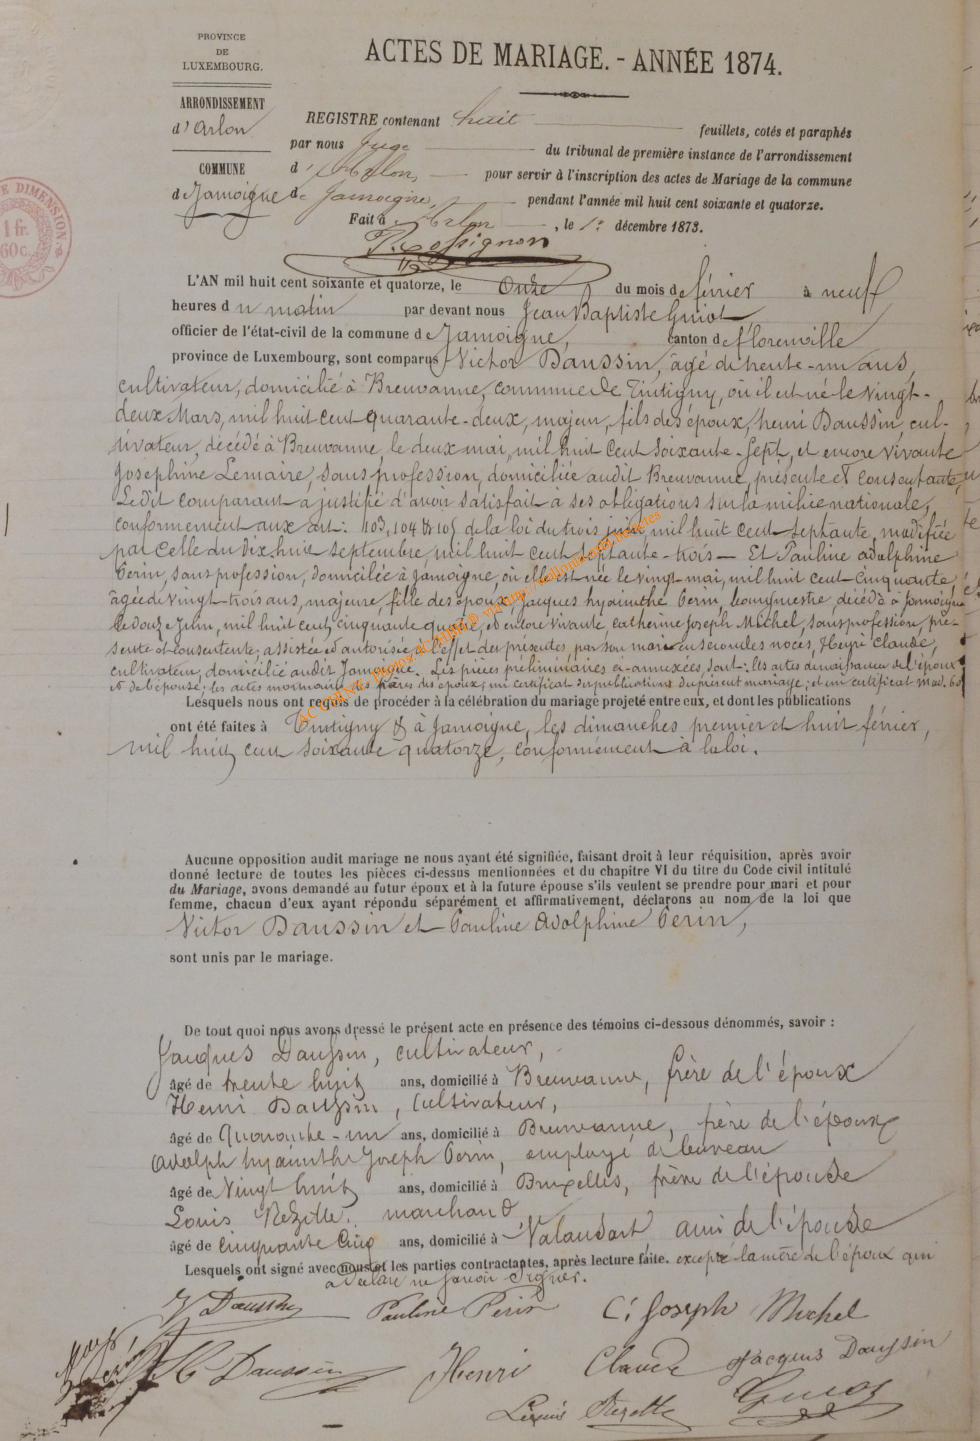 PROVINCE
DE
LUXEMBOURG.
ARRONDISSEMENT
d'Arlon
COMMUNE
de Jamoigne
E DIMENSION
1 fr.
60 c.
ACTES DE MARIAGE. - ANNÉE 1874.
REGISTRE contenant huit feuillets, cotés et paraphés
par nous Juge du tribunal de première instance de l'arrondissement
d'Arlon, pour servir à l'inscription des actes de Mariage de la commune
de Jamoigne, pendant l'année mil huit cent soixante et quatorze.
Fait à Arlon, le 1er décembre 1873.
Rossignon
L'AN mil huit cent soixante et quatorze, le Onze du mois de février à neuf
heures du matin par devant nous Jean Baptiste Guiot
officier de l'état-civil de la commune de Jamoigne, canton de florenville
province de Luxembourg, sont comparus Victor Daussin, âgé de trente-un ans,
cultivateur, domicilié à Breuvanne, commune de Tintigny, où il est né le vingt-
deux Mars, mil huit cent quarante-deux, majeur, fils des époux, henri Daussin, cul-
tivateur, décédé à Breuvanne, le deux mai, mil huit cent soixante-sept, et encore vivante
Josephine Lemaire, sans profession, domiciliée audit Breuvanne, présente et consentante,
Ledit comparant a justifié d'avoir satisfait à ses obligations sur la milice nationale,
conformément aux art: 103, 104 & 105 de la loi du trois juin, mil huit cent septante, modifiée
par celle du dix huit septembre mil huit cent septante-trois — Et Pauline adolphine
Perin, sans profession, domiciliée à Jamoigne, où elle est née le vingt mai, mil huit cent cinquante
âgée de vingt-trois ans, majeure, fille des époux, Jacques hyacinthe Perin, bourgmestre, décédé à Jamoigne
le douze Juin, mil huit cent cinquante quatre, et encore vivante catherine Joseph Michel, sans profession, pré-
sente et consentente, assistée et autorisée à l'effet des présentes, par son mari en secondes noces, Henri Claude,
cultivateur, domicilié audit Jamoigne. Les pièces préliminaires ci-annexées sont: les actes de naissance de l'époux
et de l'épouse; les actes mortuaires des pères des époux; un certificat des publications du présent mariage; et un certificat mod.
Lesquels nous ont requis de procéder à la célébration du mariage projeté entre eux, et dont les publications
ont été faites à Tintigny & à Jamoigne, les dimanches premier et huit février,
mil huit cent soixante quatorze, conformément à la loi.
Aucune opposition audit mariage ne nous ayant été signifiée, faisant droit à leur réquisition, après avoir
donné lecture de toutes les pièces ci-dessus mentionnées et du chapitre VI du titre du Code civil intitulé
du Mariage, avons demandé au futur époux et à la future épouse s'ils veulent se prendre pour mari et pour
femme, chacun d'eux ayant répondu séparément et affirmativement, déclarons au nom de la loi que
Victor Daussin et Pauline Adolphine Perin,
sont unis par le mariage.
De tout quoi nous avons dressé le présent acte en présence des témoins ci-dessous dénommés, savoir :
Jacques Daussin, cultivateur,
âgé de trente huit ans, domicilié à Breuvanne, frère de l'époux
Henri Daussin, cultivateur,
âgé de Quarante-un ans, domicilié à Breuvanne, frère de l'époux
Adolph hyacinthe Joseph Perin, employé de bureau
âgé de Vingt huit ans, domicilié à Bruxelles, frère de l'épouse
Louis Rezette, marchand
âgé de cinquante cinq ans, domicilié à Valansart, ami de l'épouse
Lesquels ont signé avec nous et les parties contractantes, après lecture faite. excepté la mère de l'époux qui
a déclaré ne savoir signer.
V Daussin Pauline Perin C. Joseph Michel
H Daussin Henri Claude Jacques Daussin
Louis Rezette Guiot